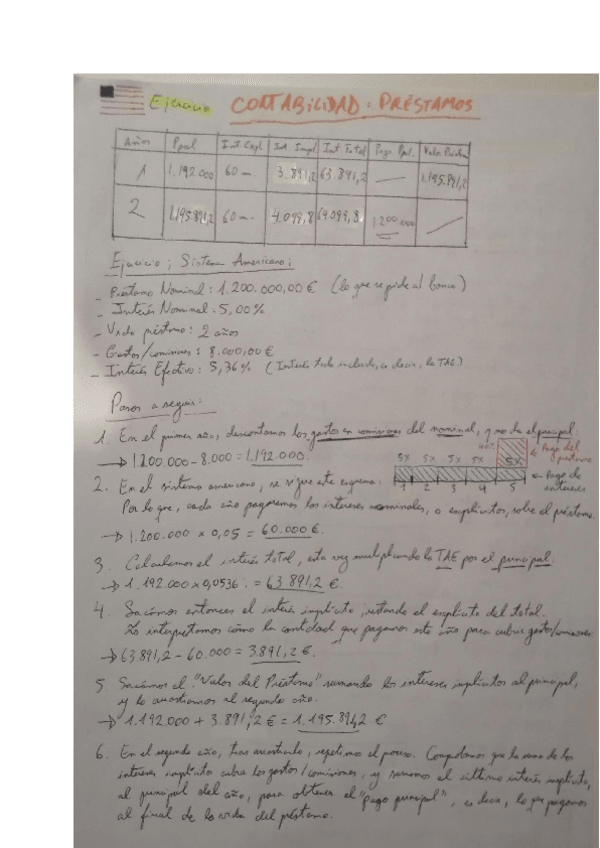 Ejercicio CONTABILIDAD: PRÉSTAMOS
Años Ppal Int. Expl Int. Impl Int Total Pago Ppl. Valor Préstamo
1 1.192.000 60 m. 3.891,2 63.891,2 — 1.195.891,2
2 1.195.891,2 60 m. 4.099,8 64.099,8 1.200.000
Ejercicio; Sistema Americano:
- Préstamo Nominal: 1.200.000,00 € (lo que se pide al banco)
- Interés Nominal: 5,00%
- Vida préstamo: 2 años
- Gastos/comisiones: 8.000,00 €
- Interés Efectivo: 5,36% (Interés todo incluido, es decir, la TAE)
Pasos a seguir:
1. En el primer año, descontamos los gastos en comisiones del nominal, y nos da el principal:
→ 1.200.000 - 8.000 = 1.192.000.
100% ← Pago del préstamo
5% 5% 5% 5% 5%
1 2 3 4 5 ← Pago de intereses
2. En el sistema americano, se sigue este esquema:
Por lo que, cada año pagaremos los intereses nominales, o explícitos, sobre el préstamo.
→ 1.200.000 x 0,05 = 60.000 €.
3. Calculamos el interés total, esta vez multiplicando la TAE por el principal:
→ 1.192.000 x 0,0536 = 63.891,2 €.
4. Sacamos entonces el interés implícito, restando el explícito del total.
Lo interpretamos cómo la cantidad que pagamos este año para cubrir gastos/comisiones:
→ 63.891,2 - 60.000 = 3.891,2 €.
5. Sacamos el "Valor del Préstamo" sumando los intereses implícitos al principal,
y lo arrastramos al segundo año.
→ 1.192.000 + 3.891,2 € = 1.195.891,2 €
6. En el segundo año, tras arrastrarlo, repetimos el proceso. Comprobamos que la suma de los
intereses implícitos cubra los gastos/comisiones, y sumamos el último interés implícito,
al principal del año, para obtener el "pago principal", es decir, lo que pagamos
al final de la vida del préstamo.